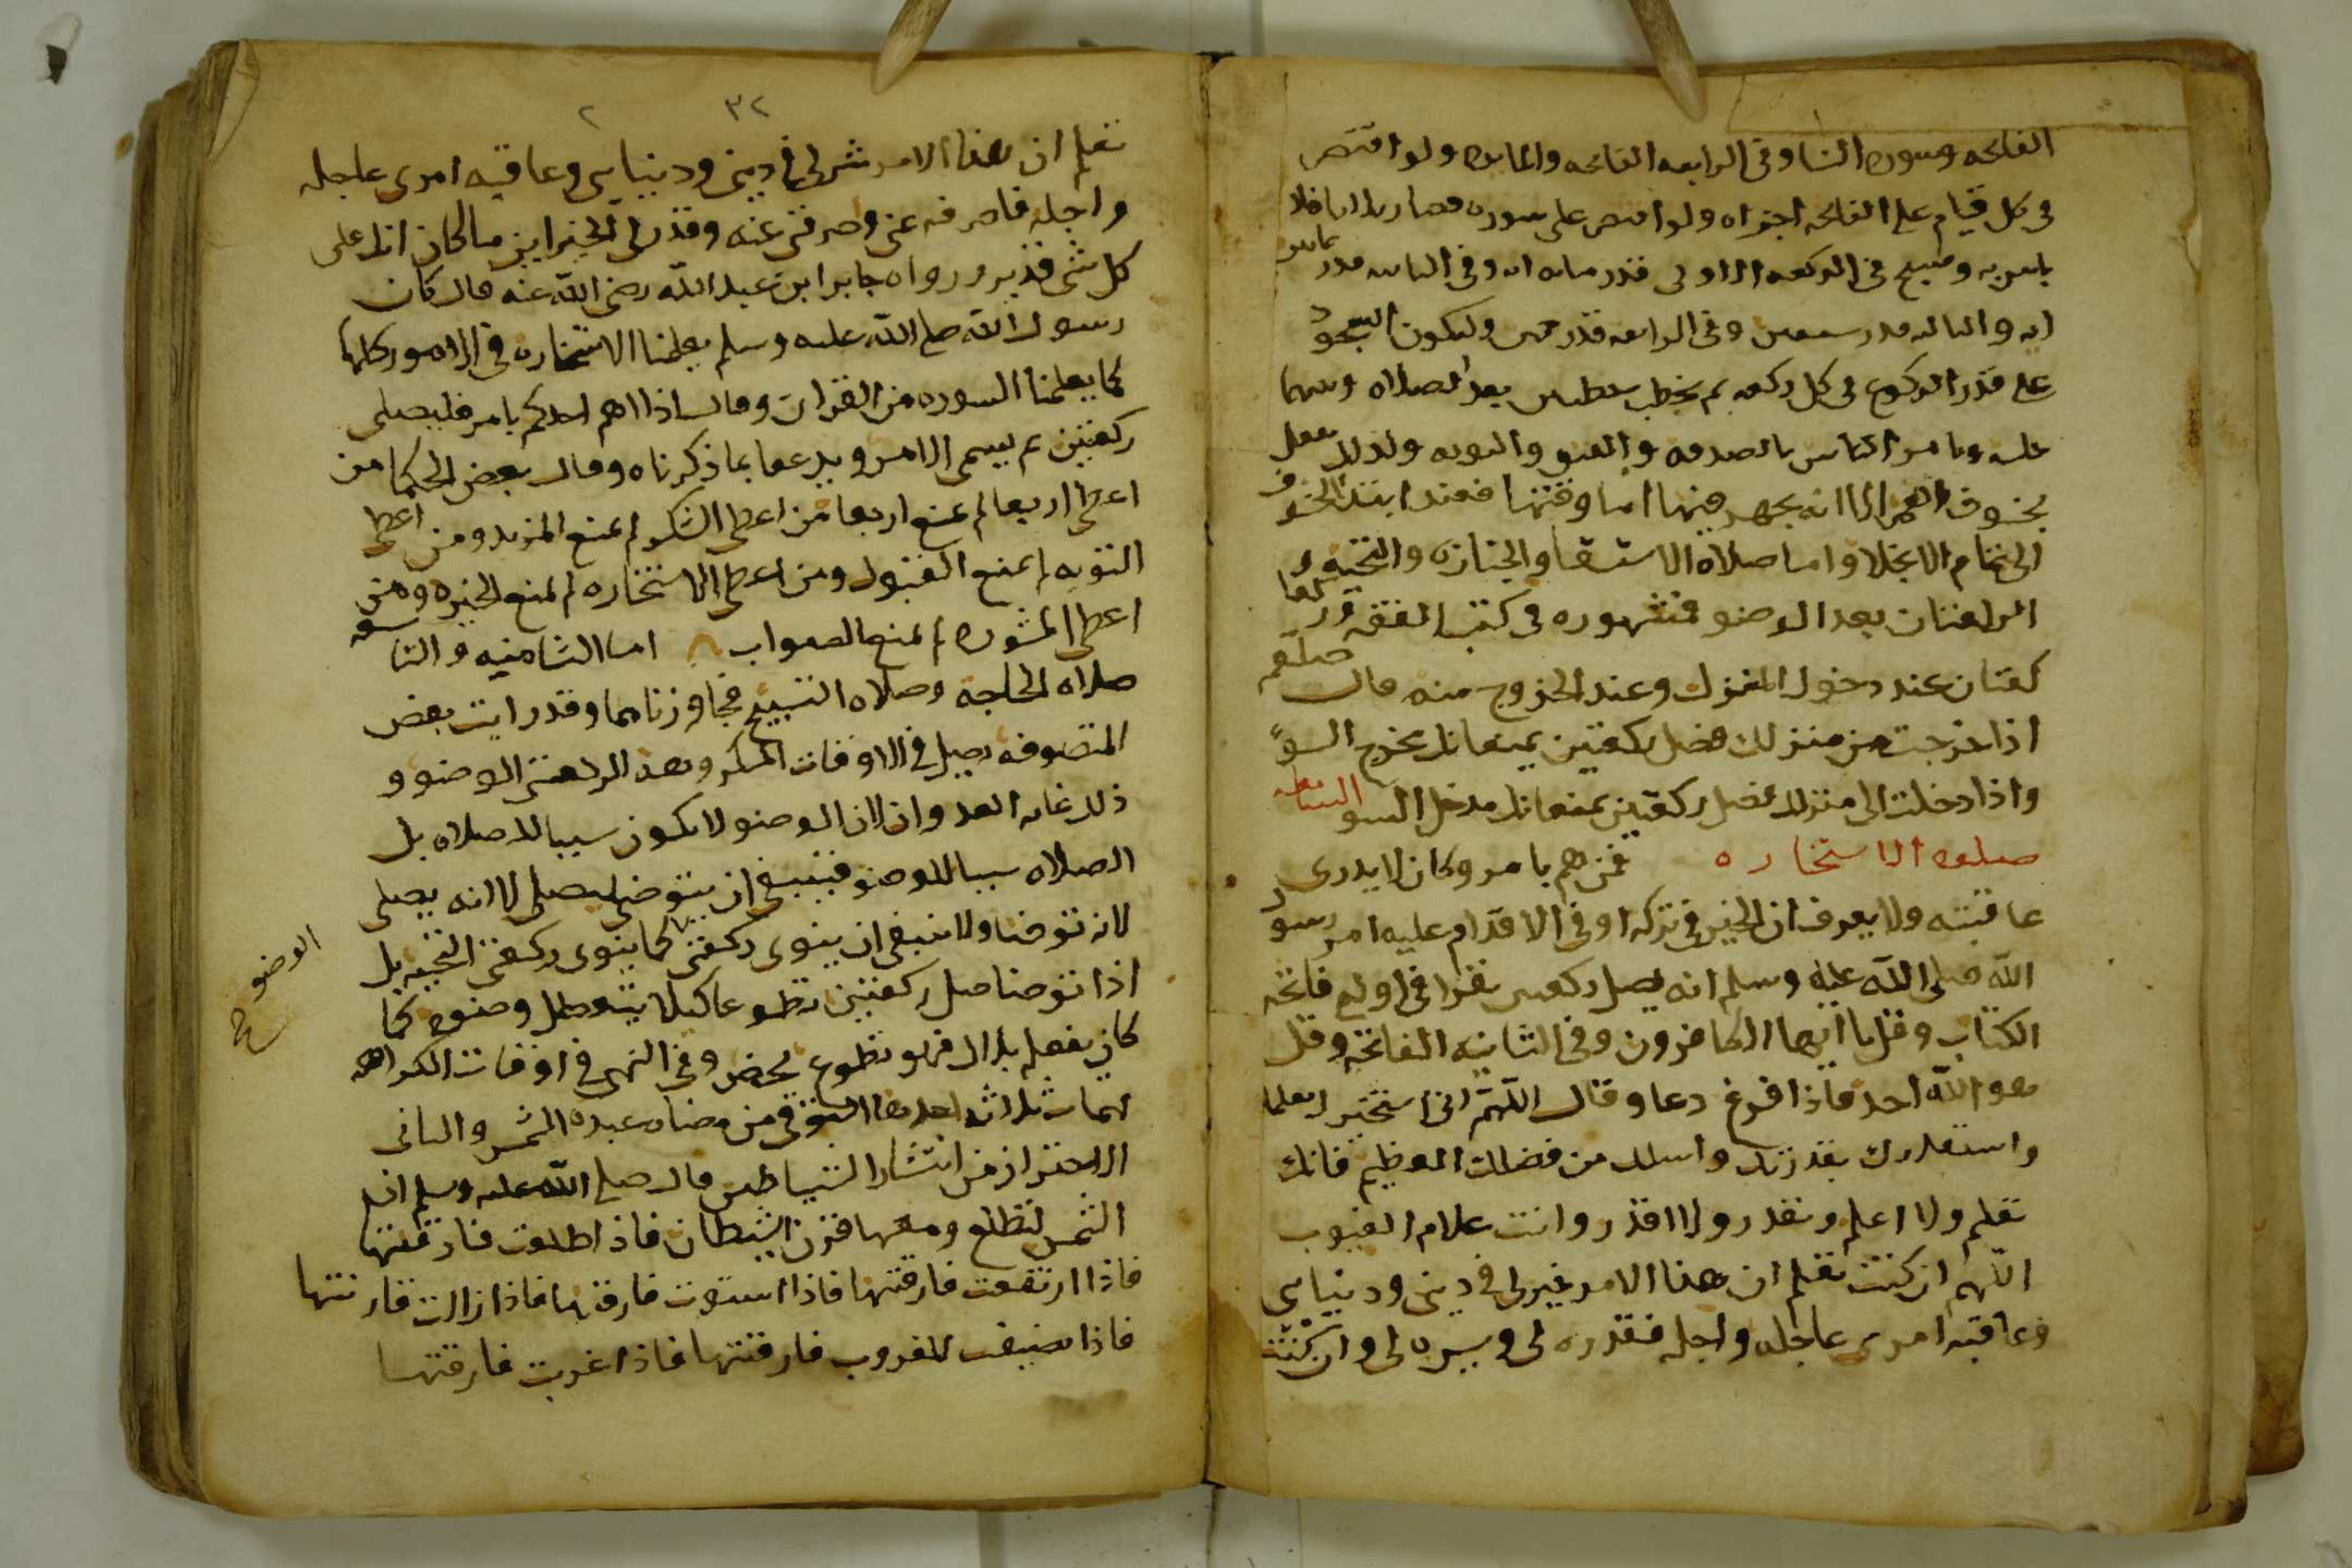 الفاتحه وسوره النسا وفى الرابعه الفاتحه والمايده ولو اقتصر
فى كل قيام على الفاتحه اجزاه ولو اقتصر على سوره قصار فلا
باس به ويسبح فى الركعه الاولى قدر مايه ايه وفى الثانيه قدر ثمانين
ايه والثالثه قدر سبعين وفى الرابعه قدر خمسين وليكون السجود
على قدر الركوع فى كل ركعه ثم يخطب خطبتين بعد الصلاه وبينهما
جلسه ويامر الناس بالصدقه والعتق والتوبه وكذلك يفعل
بخسوف القمر الا انه يجهر فيها اما وقتها فعند ابتدا الخسوف
الى تمام الانجلا واما صلاه الاستسقا والجنازه والتحيه و
الركعتان بعد الوضو فمشهوره فى كتب الفقه ور
كعتان عند دخول المنزل وعند الخروج منه قال صلعم
اذا خرجت من منزلك فصل ركعتين يمنعانك مخرج السو
واذا دخلت الى منزلك فصل ركعتين يمنعانك مدخل السو السابعه
صلوه الاستخاره فمن هم بامر وكان لا يدرى
عاقبته ولا يعرف ان الخير فى تركه او فى الاقدام عليه امر رسول
الله صلى الله عليه وسلم انه يصلى ركعتين يقرا فى اولى فاتحه
الكتاب وقل يا ايها الكافرون وفى الثانيه الفاتحه وقل
هو الله احد فاذا فرغ دعا وقال اللهم انى استخيرك بعلمك
واستقدرك بقدرتك واسلك من فضلك العظيم فانك
تعلم ولا اعلم وتقدر ولا اقدر وانت علام الغيوب
اللهم ان كنت تعلم ان هذا الامر خير لى فى دينى ودنياى
وعاقبه امرى عاجله واجله فقدره لى ويسره لى وان كنت
٣٢ ٢
تعلم ان هذا الامر شر لى فى دينى ودنياى وعاقبه امرى عاجله
واجله فاصرفه عنى واصرفنى عنه وقدر لى الخير اين ما كان انك على
كل شى قدير ورواه جابر ابن عبد الله رضى الله عنه قال كان
رسول الله صلى الله عليه وسلم يعلمنا الاستخاره فى الامور كلها
كما يعلمنا السوره من القران وقال اذا اهم احدكم بامر فليصلى
ركعتين ثم يسمى الامر ويدعوا بما ذكرناه وقال بعض الحكما من
اعطى اربعا لم يمنع اربعا من اعطى الشكر لم يمنع المزيد ومن اعطى
التوبه لم يمنع القبول ومن اعطى الاستخاره لم يمنع الخيره ومن
اعطى المشوره لم يمنع الصواب اما الثامنيه والتاسعه
صلاه الحاجه وصلاه التسبيح فجاوزناهما وقد رايت بعض
المتصوفه يصلى فى الاوقات المكروهه الركعتين الوضو و
ذلك غايه البعد وان لان الوضو لا يكون سببا للصلاه بل
الصلاه سببا للوضو فينبغى ان يتوضى ليصلى لا انه يصلى
لانه توضا ولا ينبغى ان ينوى ركعتى كما ينوى ركعتى التحيه بل
الوضو صح
اذا توضا صلى ركعتين تطوعا كيلا يتعطل وضوه كما
كان يفعله بلال فهو تطوع محض وفى النهى فى اوقات الكراهه
مهمات ثلاثه احدها التوقى من مضاه عبده الشمس والثانى
الاحتراز من انتشار الشياطين قال صلى الله عليه وسلم ان
الشمس لتطلع ومعها قرن الشيطان فاذا طلعت فارقتها
فاذا ارتفعت فارقتها فاذا استوت فارقتها فاذا زالت قارنتها
فاذا تضيفت للغروب فارقتها فاذا غربت فارقتها